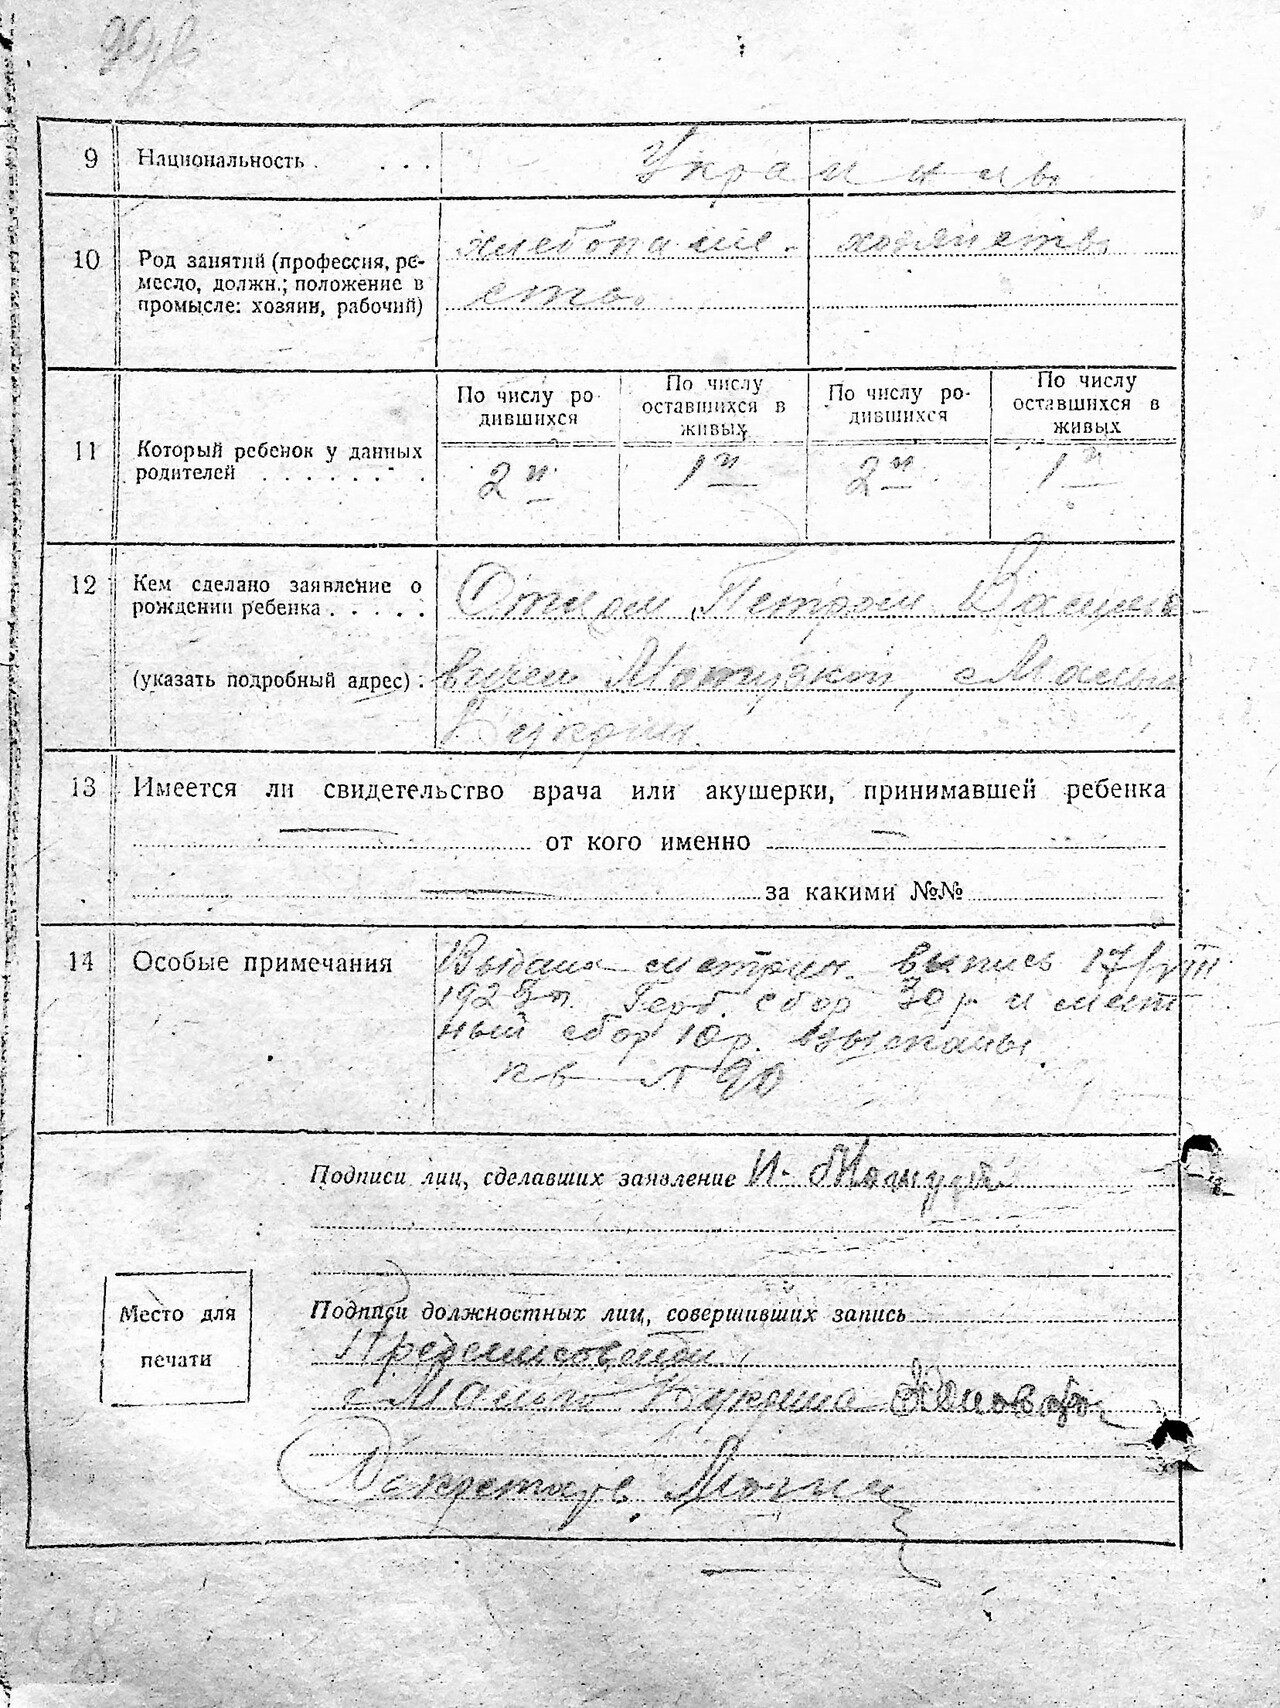 9 Национальность . . . .
10 Род занятий (профессия, ре-
месло, должн.; положение в
промысле: хозяин, рабочий)
хлебопаше-
сть.
хозяйств.
11 Который ребенок у данных
родителей . . . . . . .
По числу ро-
дившихся
По числу
оставшихся в
живых
По числу ро-
дившихся
По числу
оставшихся в
живых
2й 1й 2й 1й
12 Кем сделано заявление о
рождении ребенка . . . . .
(указать подробный адрес) .
Отцом Петром Василь-
вичем
13 Имеется ли свидетельство врача или акушерки, принимавшей ребенка
от кого именно
за какими №№
14 Особые примечания
Выдана метрич. выпись 17/VIII
192 Герб. сбор 30 р. и мест
ный сбор 10 р. взысканы.
кв № 90
Подписи лиц, сделавших заявление
Место для
печати
Подписи должностных лиц, совершивших запись
Предсельсовета
с Малого Букрина
Секретарь